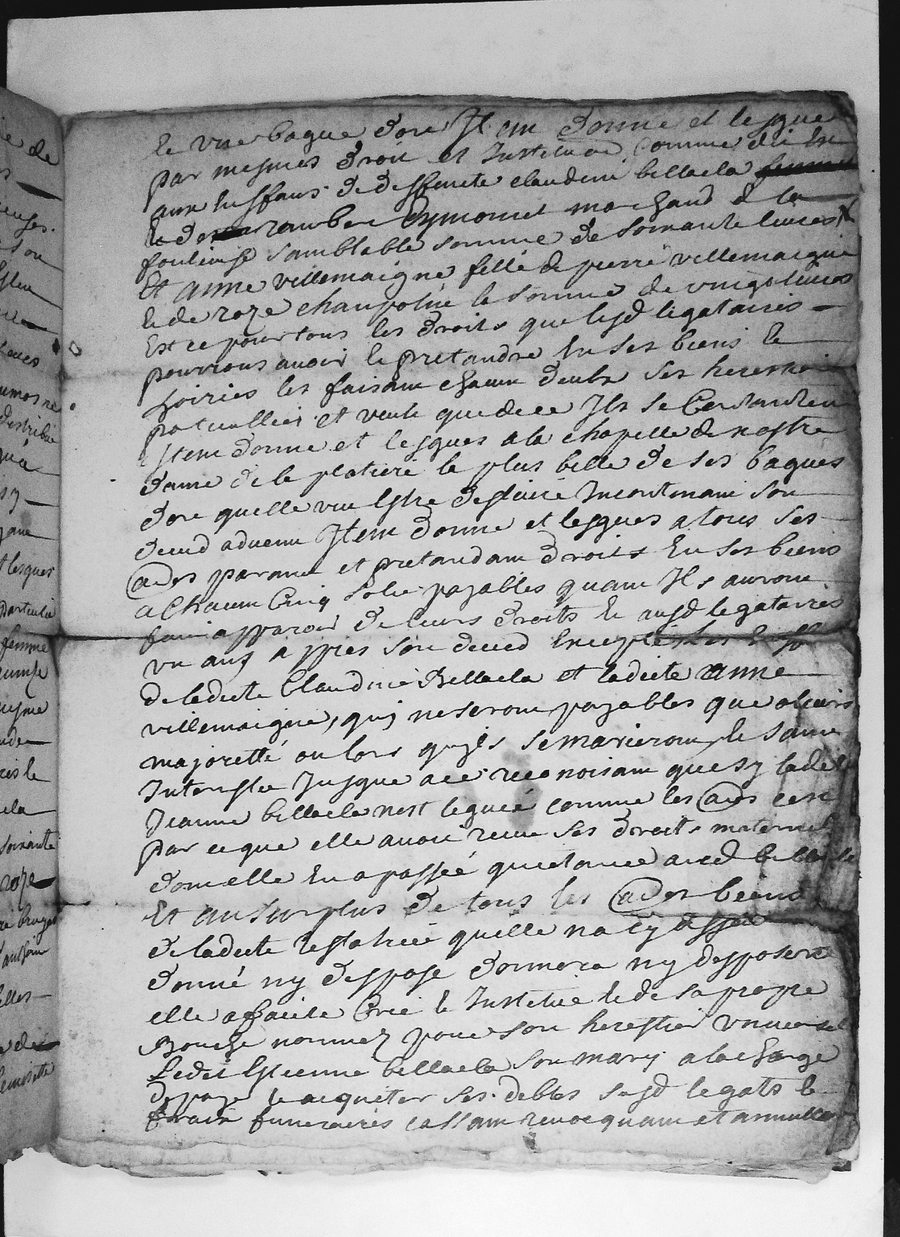 et une bague dore Item donne et legue
par mesmes droit et Institution comme dit est
aux Enffans de deffuncte claudine bellacla
et de rambec Eymonnet marchand a la
foulouse samblable somme de soixante livres
Et anne villemaigne fille de pierre villemaigne
et de roze champolive la somme de vingt livres
Est ce pour tous les droits que lesd legataires
pourrons avoir et pretandre En ses biens et
hoiries les faisans chacun deubz ses heresties
particulliers et veult que de ce Ils se Contantent
Item donne et legues a la chapelle de nostre
dame de la platiere la plus belle de ses bagues
dore quelle veu Estre deslivré Incontinant son
deced advenu Item donne et legues a tous ses
autres parans et pretandam droits En ses biens
a Chacun Cinq solz payables quant Ils auront
fait apparoir de leurs droits et ausd legataires
un ans appres son deced Excepte les Enff
de ladicte Claudine Bellacla et ladicte anne
villemaigne, quj ne seront payables que a leurs
majoretté ou lors quils se marieront, et sans
Interestz Jusque a ce reconoisant que sy ladicte
Jeanne bellacla nest leguée comme les autres cest
par ce que elle avoit receu ses droits maternels
dont elle En a passée quictance aud bellacla
Et au surplus de tous les autres biens
de ladicte testatrice quelle na cy dessus
donné ny disposé donnera ny disposera
elle a faicte Créé et Institué et de sa propre
Bouche nommez pour son herestier universel
Ledit Estienne bellacla son mary a la charge
de payer et acquiter ses debtes susd legats et
fraix funeraires cassant revocquant et annullant